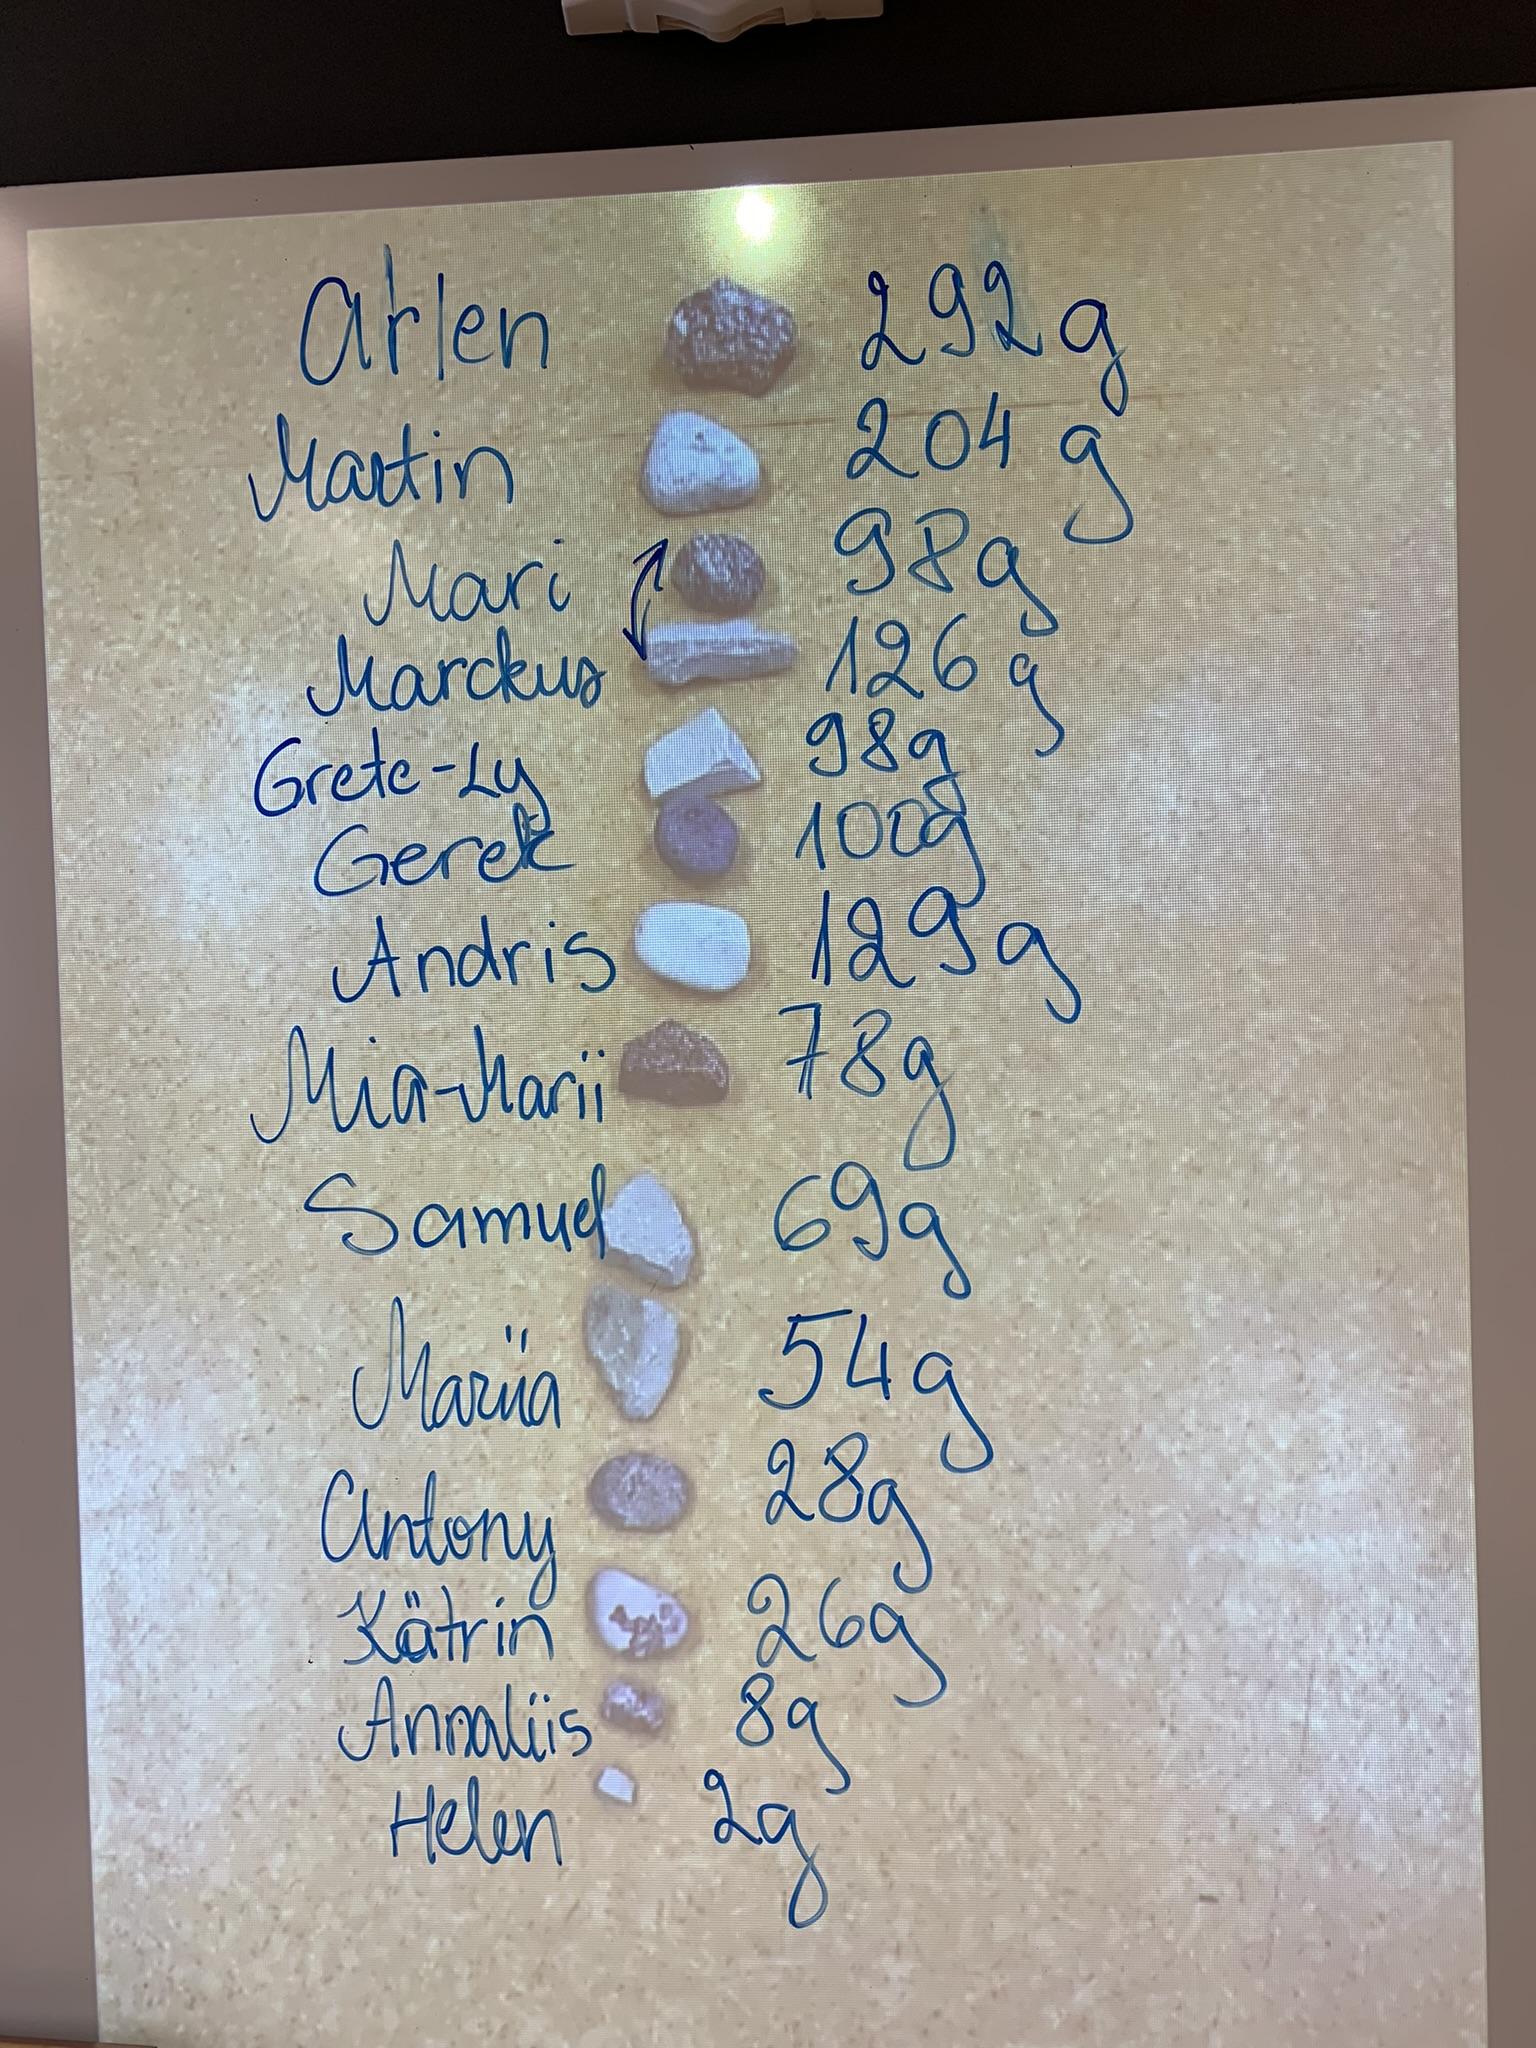 Arlen 292g
Martin 204g
Mari 98g
Marckus 126g
Grete-Ly 98g
Gerek 100g
Andris 129g
Mia-Marii 78g
Samuel 69g
Mariia 54g
Antony 28g
Kätrin 26g
Annaliis 8g
Helen 2g